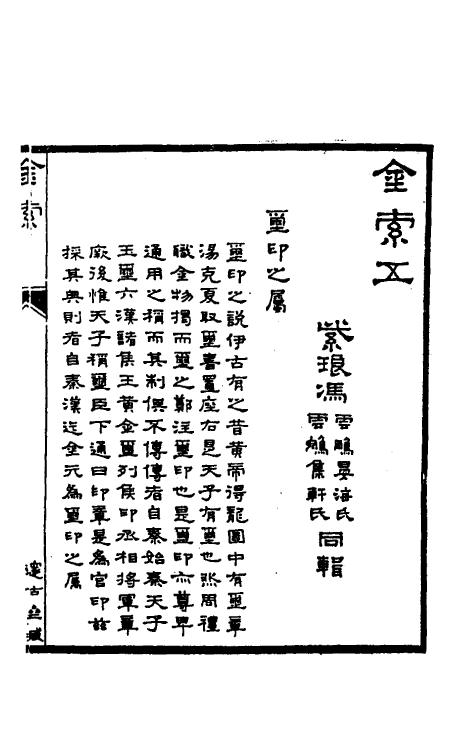 金索五
紫琅馮
雲鵬晏海氏
雲鵷集軒氏
同輯
璽印之屬
璽印之說伊古有之昔黃帝得龍圖中有璽章
湯克夏取璽書置座右是天子有璽也然周禮
職金物楬而璽之鄭注璽印也是璽印亦尊卑
通用之稱而其制俱不傳傳者自秦始秦天子
玉璽六漢諸侯王黃金璽列侯印丞相將軍章
厥後惟天子稱璽臣下通曰印章是為官印茲
採其典則者自秦漢迄金元為璽印之屬
金索
邃古齋藏